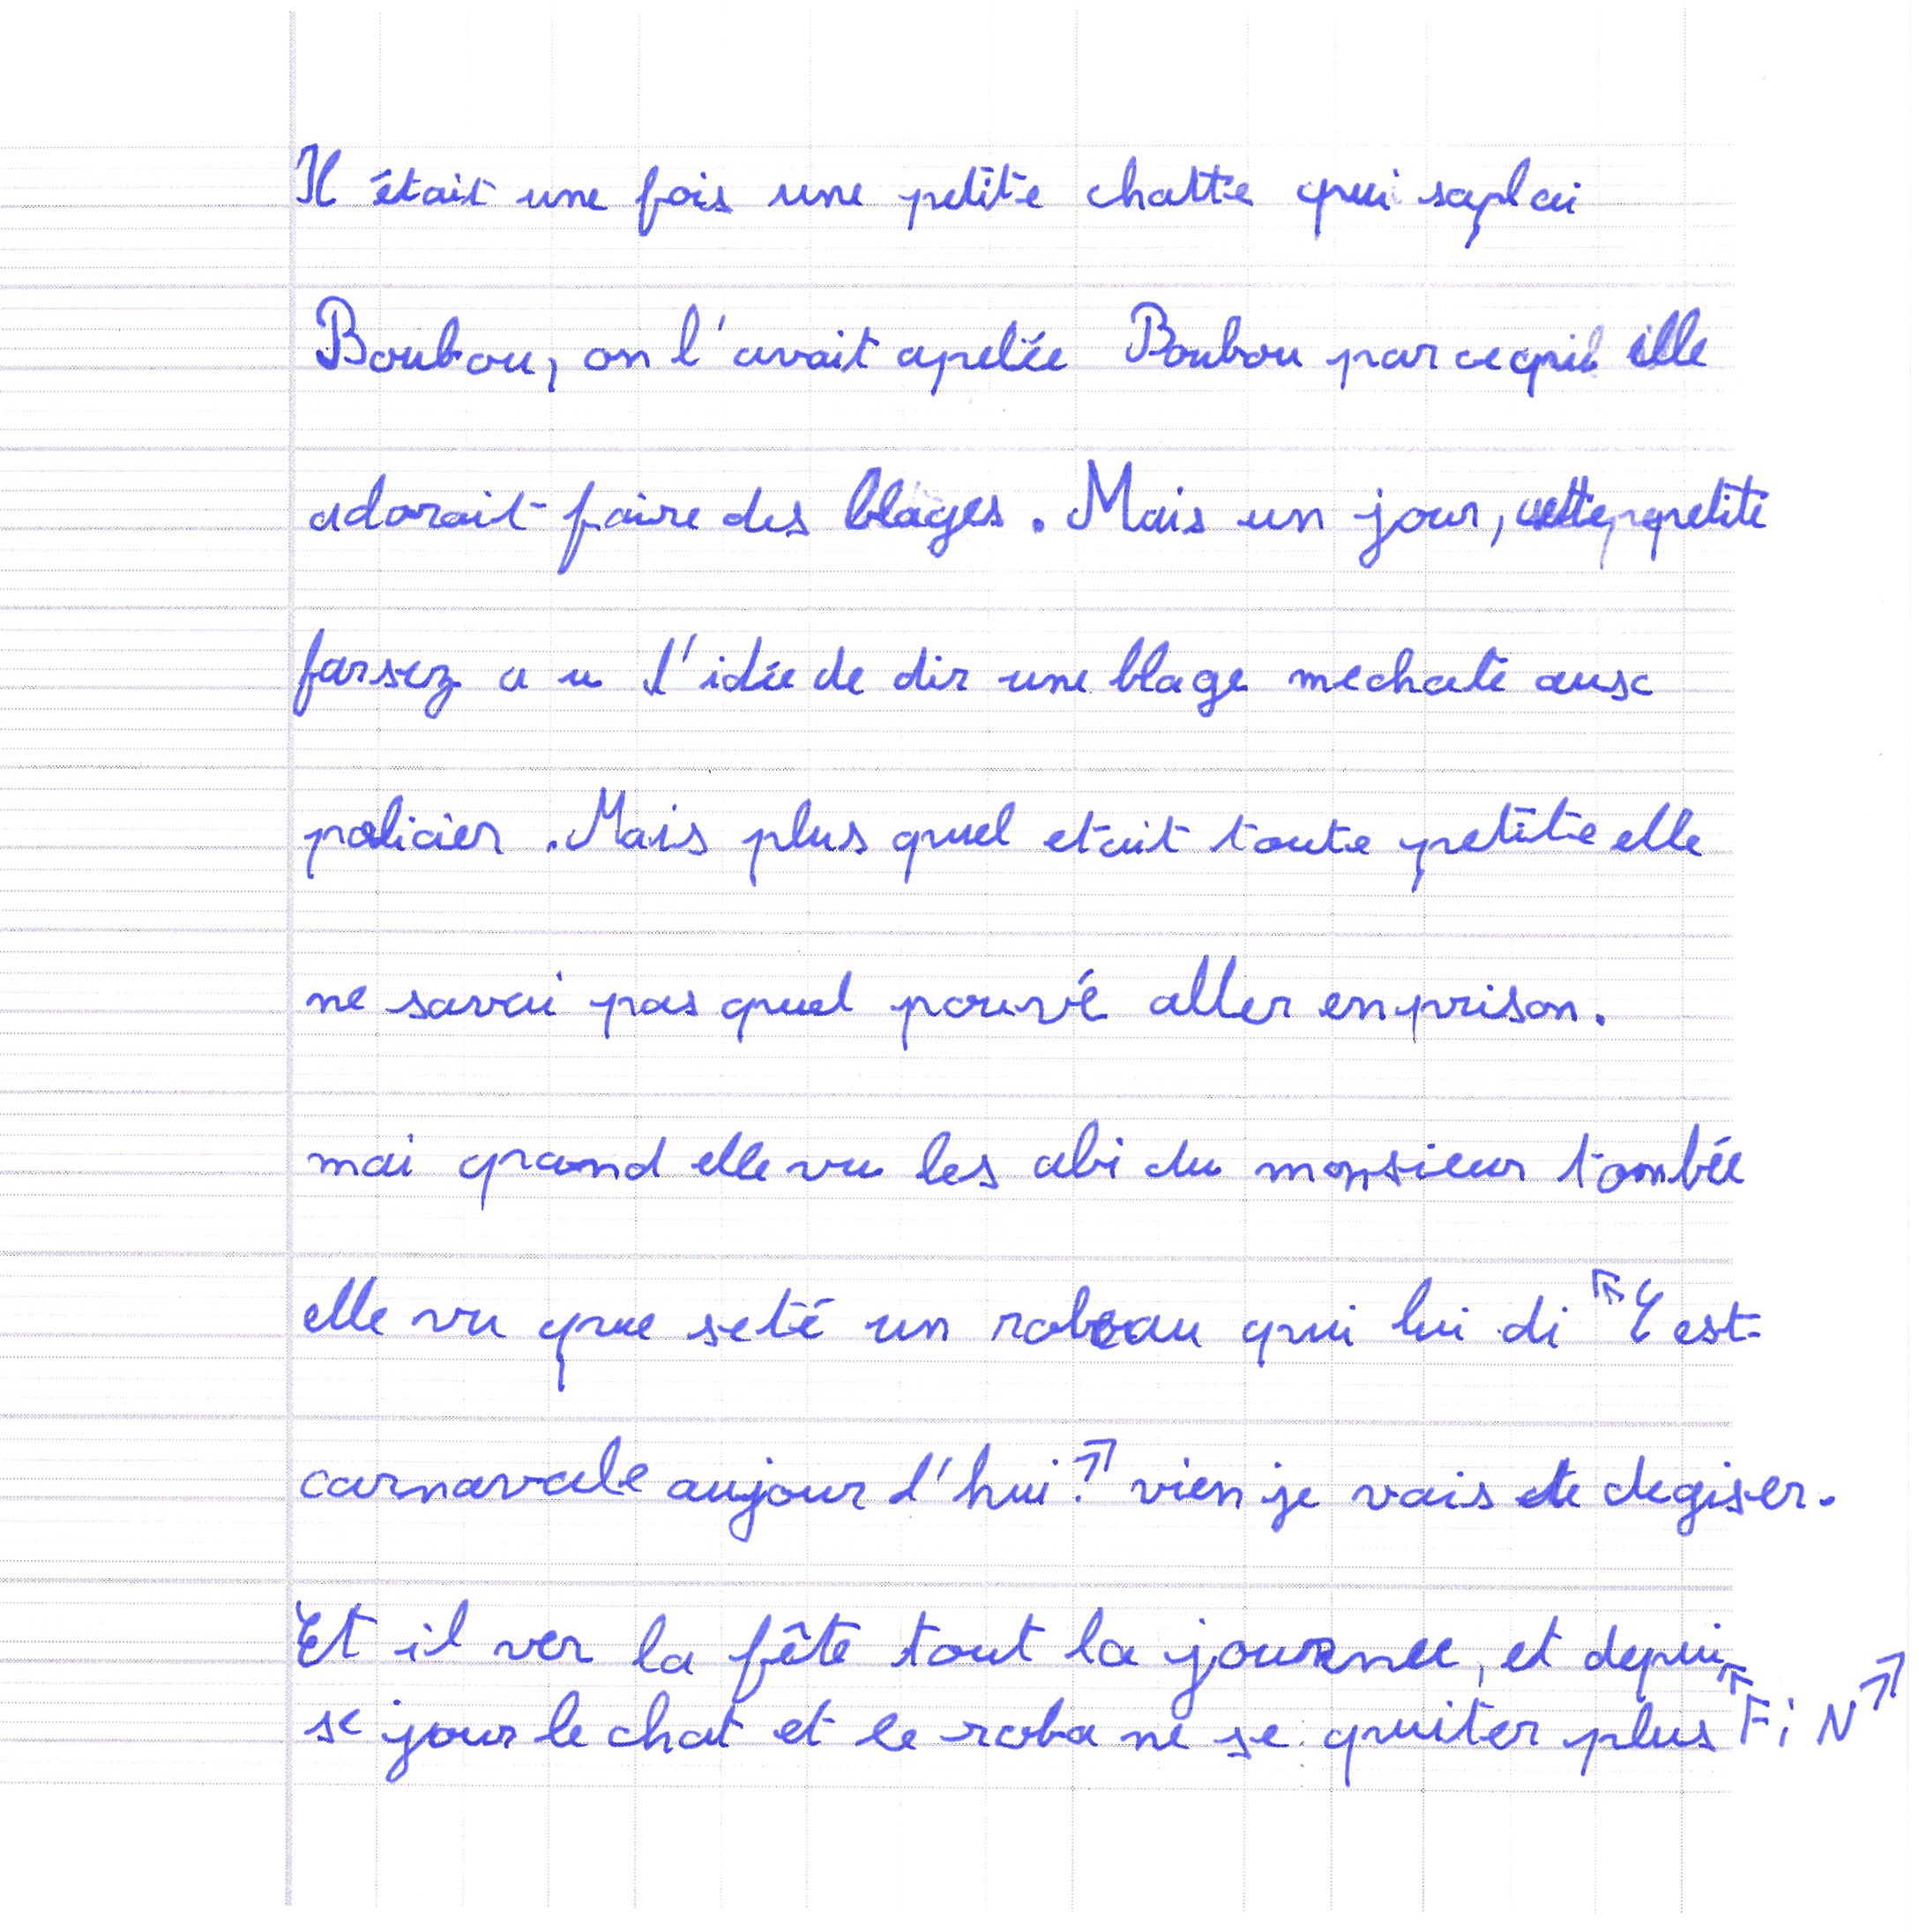 Il était une fois une petite chatte qui saplai
Boubou, on l'avait apelée Boubou parceque elle
adorait faire des blages. Mais un jour, cette petite
farsez a u l'idée de dir une blage mechate aux
policier. Mais plus quel etait toute petite elle
ne savai pas quel pouvé aller en prison.
mai quand elle vu les abi du monsieur tombée
elle vu que seté un robeau qui lui di "C'est
carnavale aujour d'hui?" vien je vais te degiser.
Et il ver la fête tout la journee, et depui
se jour le chat et le roba ne se quiter plus "FiN"